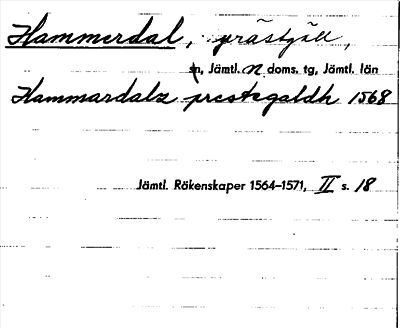 Hammerdal, prästgäll,
sn, Jämtl. N doms. tg, Jämtl. län
Hammardalz prestegaldh 1568
Jämtl. Räkenskaper 1564–1571, II s. 18